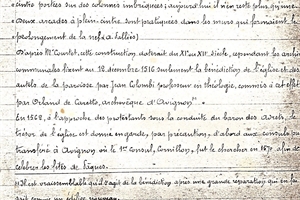 cintre portées sur des colonnes imbriquées; aujourd'hui il n'en reste plus qu'une.
Deux arcades à plein-cintre sont pratiquées dans les murs que formaient le
prolongement de la nef
D'après Mr Courtet, cette construction daterait du XIe au XIIe siècle, cependant les archives
communales fixent au 18 décembre 1516 seulement la bénédiction de l'église et des
autels de la paroisse par Jean Colombi professeur en théologie, commis à cet effet
par Orland de Caretto, archevêque d'Avignon.
En 1562, à l'approche des protestants sous la conduite du baron des Adrets, le
trésor de l'église est donné en garde, par précaution, d'abord aux consuls puis
transféré à Avignon où le 1er Consul, Cornillon, fut le chercher en 1570 afin de
célébrer les fêtes de Pâques.
Il est vraisemblable qu'il s'agit de la bénédiction après une grande réparation qui en
soit comme un édifice nouveau.